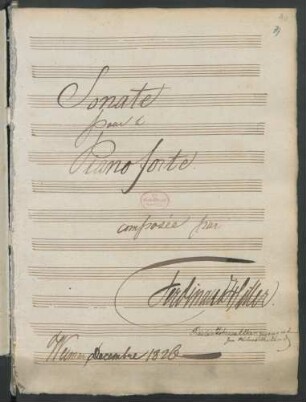 Sonate
pour le
Piano forte
composée par
Ferdinand Hiller.
Weimar Decembre 1826